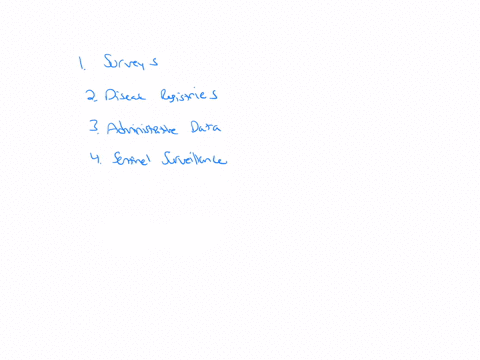 1. Surveys
2. Disease Registries
3. Administrative Data
4. Sentinel Surveillance